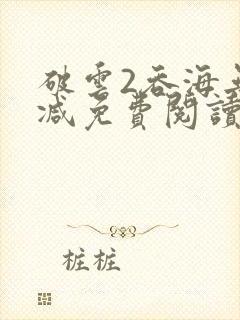 破雲2吞海
減免費閱讀
桩桩